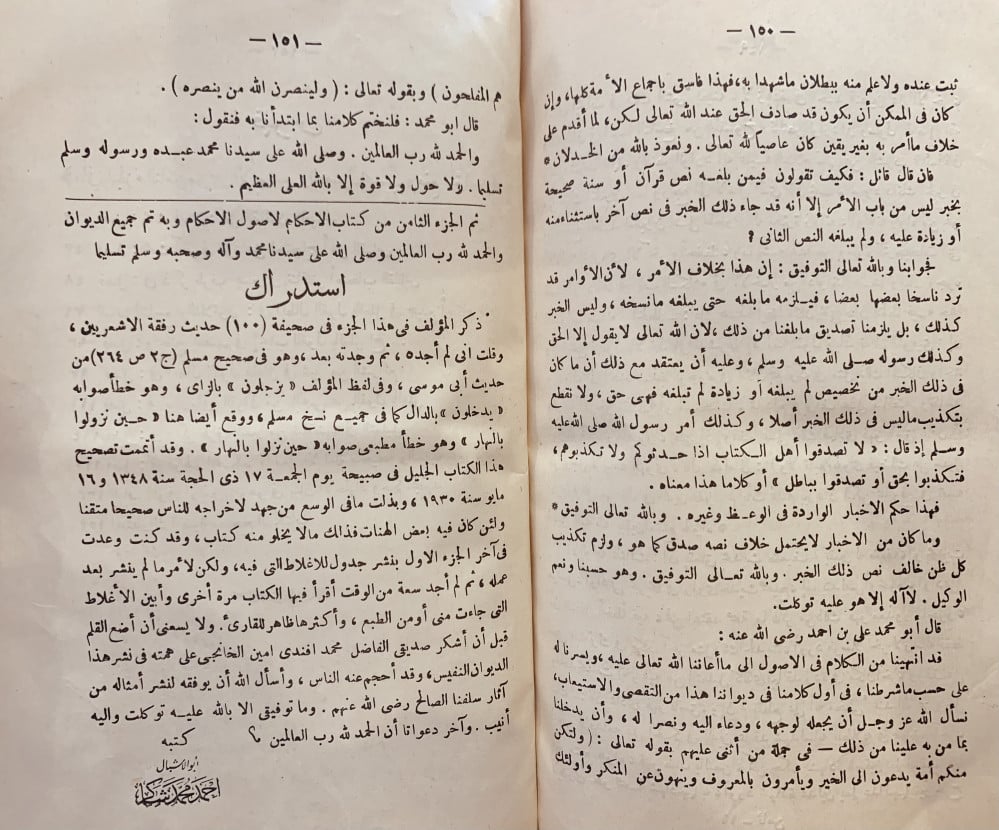 — ١٥٠ —
ثبت عنده ولاعلم منه ببطلان ماشهدا به، فهذا فاسق باجماع الأمة كلها، وإن
كان فى الممكن أن يكون قد صادف الحق عند الله تعالى لكن، لما أقدم على
خلاف ماأمر به بغير يقين كان عاصياً لله تعالى. ونعوذ بالله من الخذلان *
فان قال قائل : فكيف تقولون فيمن بلغه نص قرآن أو سنة صحيحة
بخبر ليس من باب الأمر إلا أنه قد جاء ذلك الخبر فى نص آخر باستثناءمنه
أو زيادة عليه ، ولم يبلغه النص الثانى ؟
فجوابنا وبالله تعالى التوفيق : إن هذا بخلاف الأمر ، لأن الأوامر قد
ترد ناسخا بعضها بعضا ، فيلزمه مابلغه حتى يبلغه مانسخه ، وليس الخبر
كذلك ، بل يلزمنا تصديق مابلغنا من ذلك ،لان الله تعالى لايقول إلا الحق
وكذلك رسوله صلى الله عليه وسلم ، وعليه أن يعتقد مع ذلك أن ما كان
فى ذلك الخبر من تخصيص لم يبلغه أو زيادة لم تبلغه فهى حق ، ولا نقطع
بتكذيب ماليس فى ذلك الخبر أصلا ، وكذلك أمر رسول الله صلى الله عليه
وسلم إذ قال : « لا تصدقوا أهل الكتاب اذا حدثوكم ولا تكذبوهم ،
فتكذبوا بحق أو تصدقوا بباطل » أو كلاما هذا معناه .
فهذا حكم الاخبار الواردة فى الوعظ وغيره . وبالله تعالى التوفيق *
وما كان من الاخبار لايحتمل خلاف نصه صدق كما هو ، ولزم تكذيب
كل ظن خالف نص ذلك الخبر . وبالله تعالى التوفيق . وهو حسبنا ونعم
الوكيل . لاآله إلا هو عليه توكلت.
قال أبو محمد على بن احمد رضى الله عنه :
قد انتهينا من الكلام فى الاصول الى ماأعاننا الله تعالى عليه ، ويسرنا له
على حسب ماشرطنا ، فى أول كلامنا فى ديواننا هذا من التقصى والاستيعاب،
نسأل الله عز وجل أن يجعله لوجهه ، ودعاء اليه ونصرا له ، وأن يدخلنا
بما من به علينا من ذلك — فى جملة من أثنى عليهم بقوله تعالى : ( ولتكن
منكم أمة يدعون الى الخير ويأمرون بالمعروف وينهون عن المنكر وأولئك
— ١٥١ —
هم المفلحون ) وبقوله تعالى : ( ولينصرن الله من ينصره ) .
قال ابو محمد : فلنختم كلامنا بما ابتدأنا به فنقول :
والحمد لله رب العالمين . وصلى الله على سيدنا محمد عبده ورسوله وسلم
تسليما . ولا حول ولا قوة إلا بالله العلى العظيم .
تم الجزء الثامن من كتاب الاحكام لاصول الاحكام وبه تم جميع الديوان
والحمد لله رب العالمين وصلى الله على سيدنا محمد وآله وصحبه وسلم تسليما
استدراك
ذكر المؤلف فى هذا الجزء فى صحيفة (١٠٠) حديث رفقة الاشعريين ،
وقلت انى لم أجده ، ثم وجدته بعد ، وهو فى صحيح مسلم (ج٢ ص ٢٦٤) من
حديث أبى موسى ، وفى لفظ المؤلف « يزجلون » بالزاى ، وهو خطأ صوابه
« يدخلون » بالدال كما فى جميع نسخ مسلم ، ووقع أيضا هنا « حين نزولوا
بالنهار » وهو خطأ مطبعى صوابه « حين نزلوا بالنهار » . وقد أتممت تصحيح
هذا الكتاب الجليل فى صبيحة يوم الجمعة ١٧ ذى الحجة سنة ١٣٤٨ و ١٦
مايو سنة ١٩٣٠ ، وبذلت مافى الوسع من جهد لاخراجه للناس صحيحا متقنا
ولئن كان فيه بعض الهنات فذلك مالا يخلو منه كتاب ، وقد كنت وعدت
فى آخر الجزء الاول بنشر جدول للاغلاط التى فيه ، ولكن لأمر ما لم ينشر بعد
عمله ، ثم لم أجد سعة من الوقت أقرأ فيها الكتاب مرة أخرى وأبين الأغلاط
التى جاءت منى أو من الطبع ، وأكثرها ظاهر للقارئ . ولا يسعنى أن أضع القلم
قبل أن أشكر صديقى الفاضل محمد افندى امين الخانجى على همته فى نشر هذا
الديوان النفيس ، وقد أحجم عنه الناس ، وأسأل الله أن يوفقه لنشر أمثاله من
آثار سلفنا الصالح رضى الله عنهم . وما توفيقى الا بالله عليه توكلت واليه
أنيب . وآخر دعوانا أن الحمد لله رب العالمين
كتبه
ابو الاشبال
احمد محمد شاكر